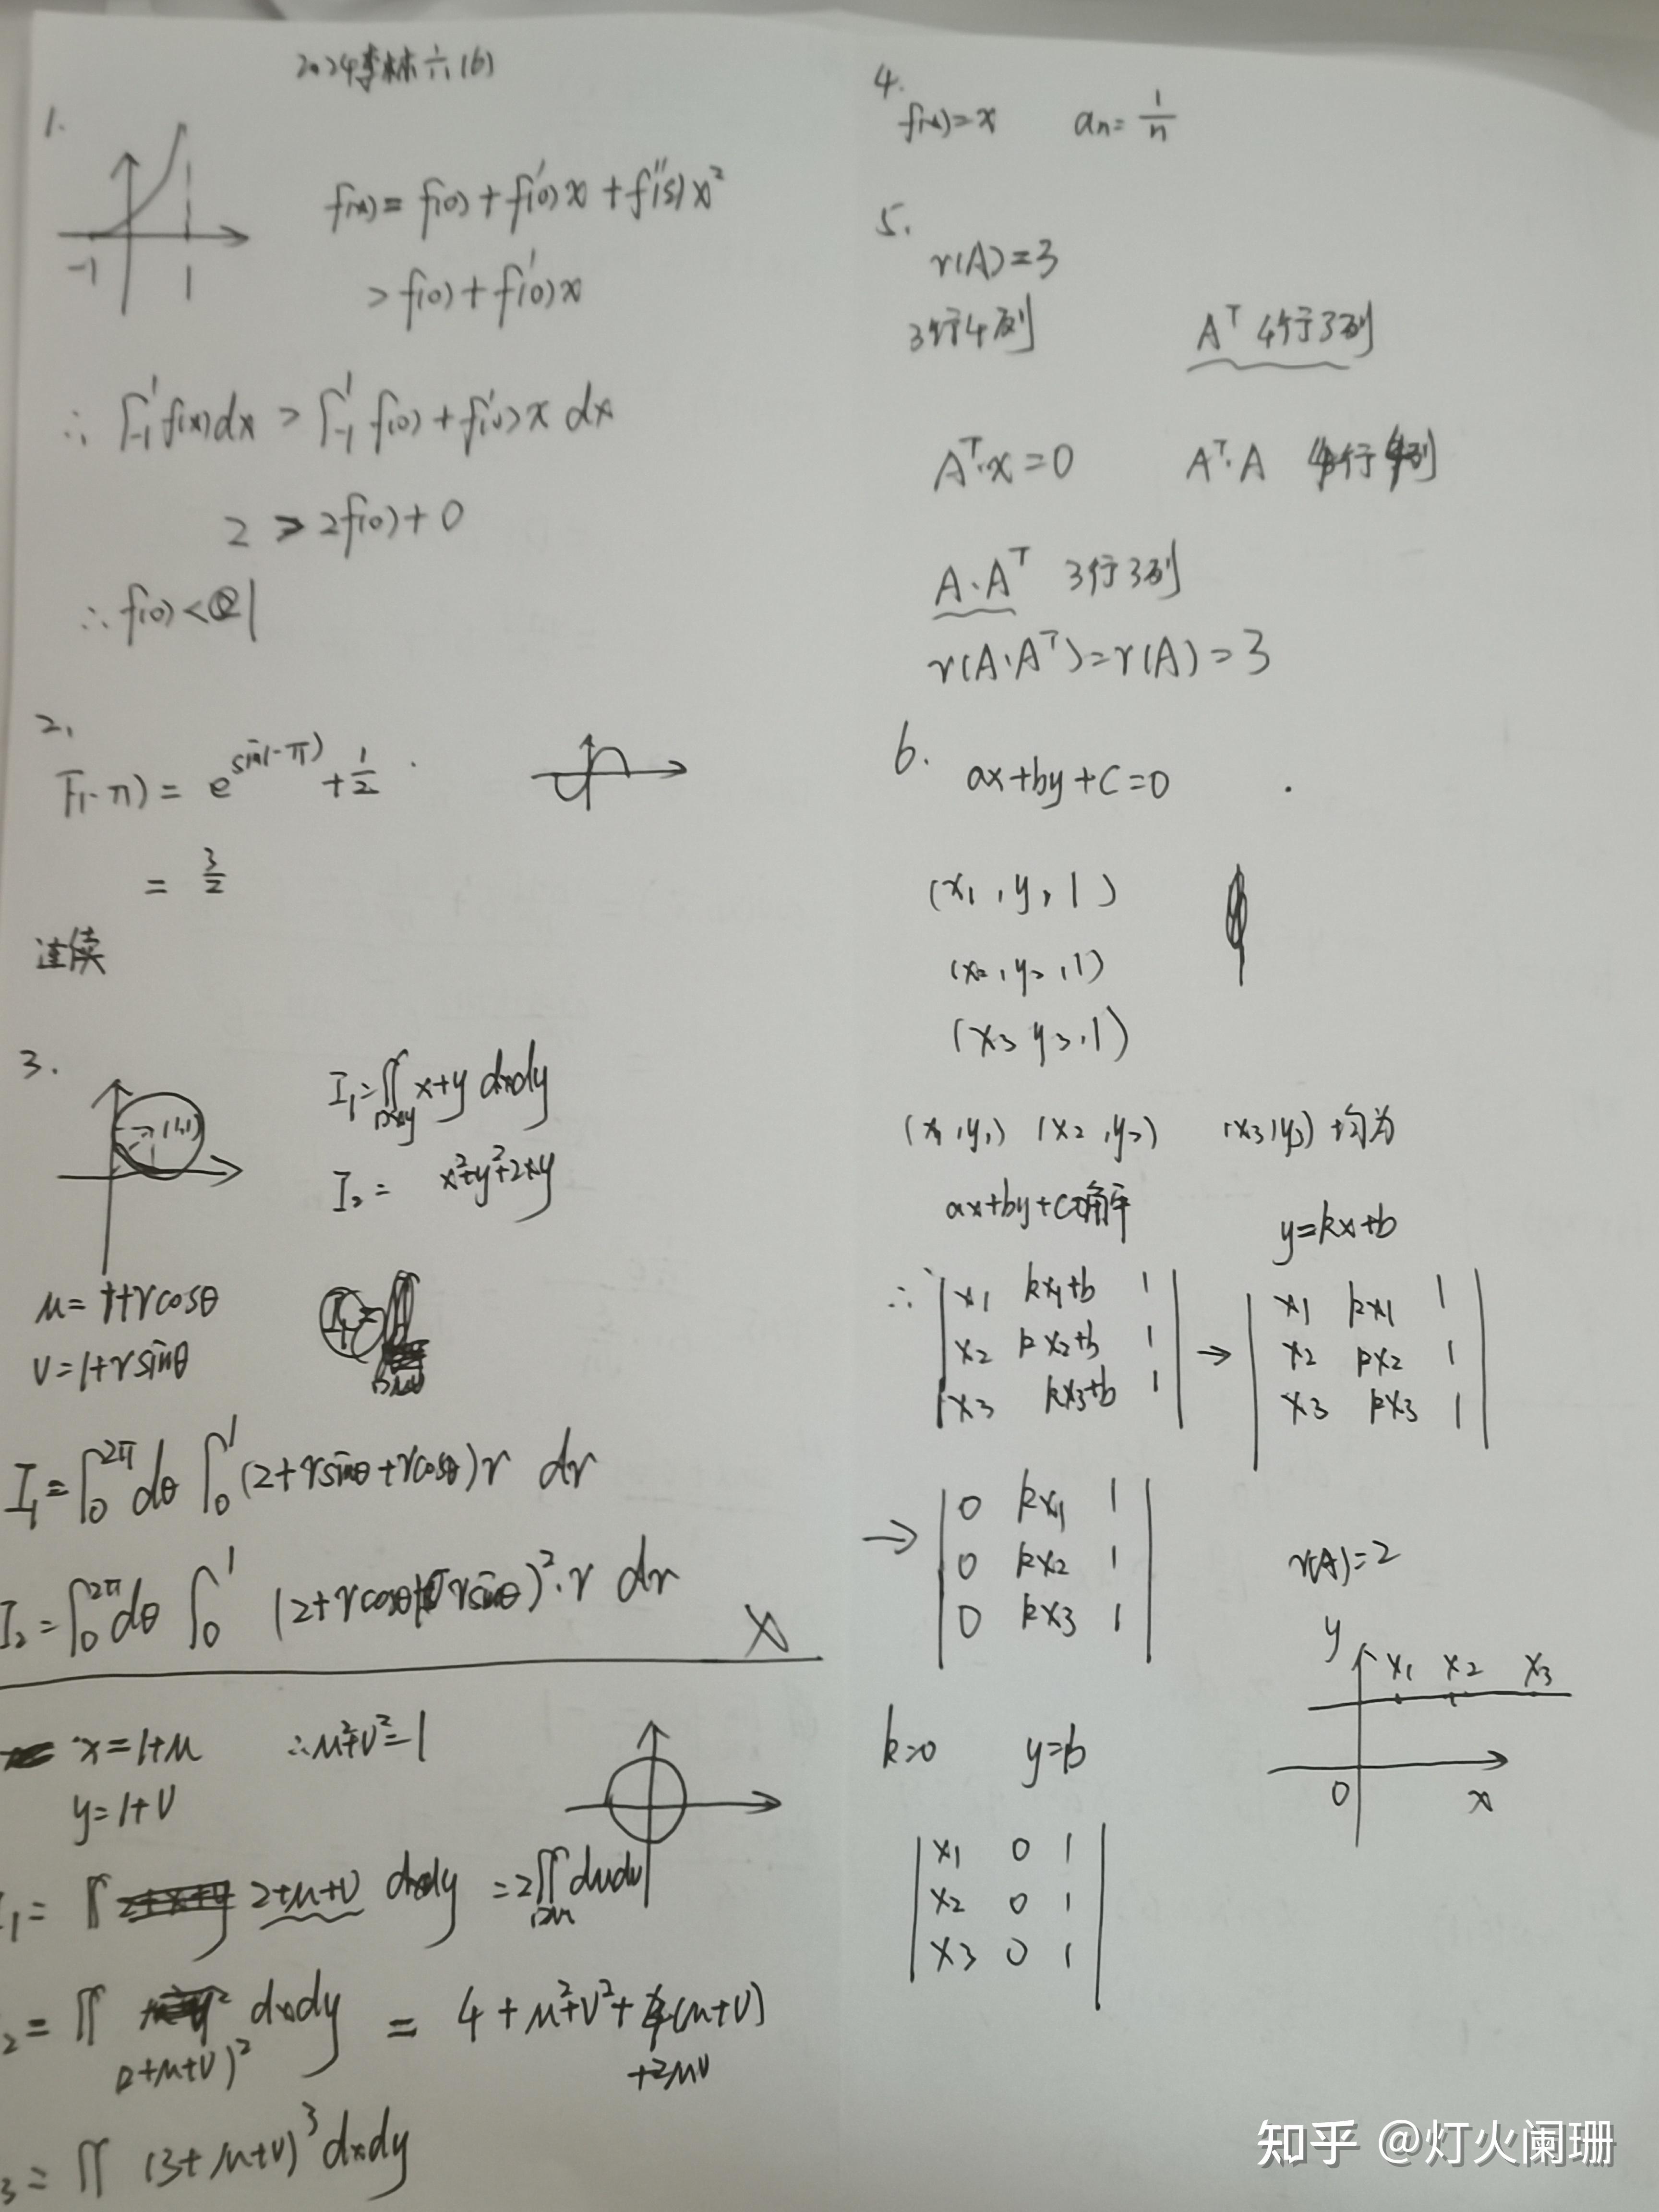 2024李林六(6)
1.
-1 1
f(x)=f(0)+f'(0)x+f''(ξ)x²
>f(0)+f'(0)x
∴∫₋₁¹f(x)dx>∫₋₁¹f(0)+f'(0)x dx
2>2f(0)+0
∴f(0)<1
2.
F(-π)=e^{sin(-π)}+1/2
=3/2
连续
3.
(1,1)
I₁=∬_{Dxy}x+y dxdy
I₂= x²+y²+2xy
u=1+rcosθ
v=1+rsinθ
I₁=∫₀^{2π}dθ∫₀¹(2+rsinθ+rcosθ)r dr
I₂=∫₀^{2π}dθ∫₀¹(2+rcosθ+rsinθ)²·r dr
x=1+u ∴u²+v²=1
y=1+v
I₁=∬2+u+v dxdy=2∬dudv
₂=∬(2+u+v)² dxdy=4+u²+v²+4(u+v)
+2uv
₃=∬(3+u+v)³dxdy
4.
f(x)=x aₙ=1/n
5.
r(A)=3
3行4列 Aᵀ 4行3列
Aᵀ·x=0 Aᵀ·A 4行4列
A·Aᵀ 3行3列
r(A·Aᵀ)=r(A)=3
6.
ax+by+c=0
(x₁,y₁,1)
(x₂,y₂,1)
(x₃ y₃,1)
(x₁,y₁) (x₂,y₂) (x₃,y₃)均为
ax+by+c=0解
y=kx+b
∴ | x₁ kx₁+b 1 | → | x₁ kx₁ 1 |
| x₂ kx₂+b 1 | | x₂ kx₂ 1 |
| x₃ kx₃+b 1 | | x₃ kx₃ 1 |
→ | 0 kx₁ 1 |
| 0 kx₂ 1 | r(A)=2
| 0 kx₃ 1 |
y
x₁ x₂ x₃
0 x
k=0 y=b
| x₁ 0 1 |
| x₂ 0 1 |
| x₃ 0 1 |
知乎 @灯火阑珊